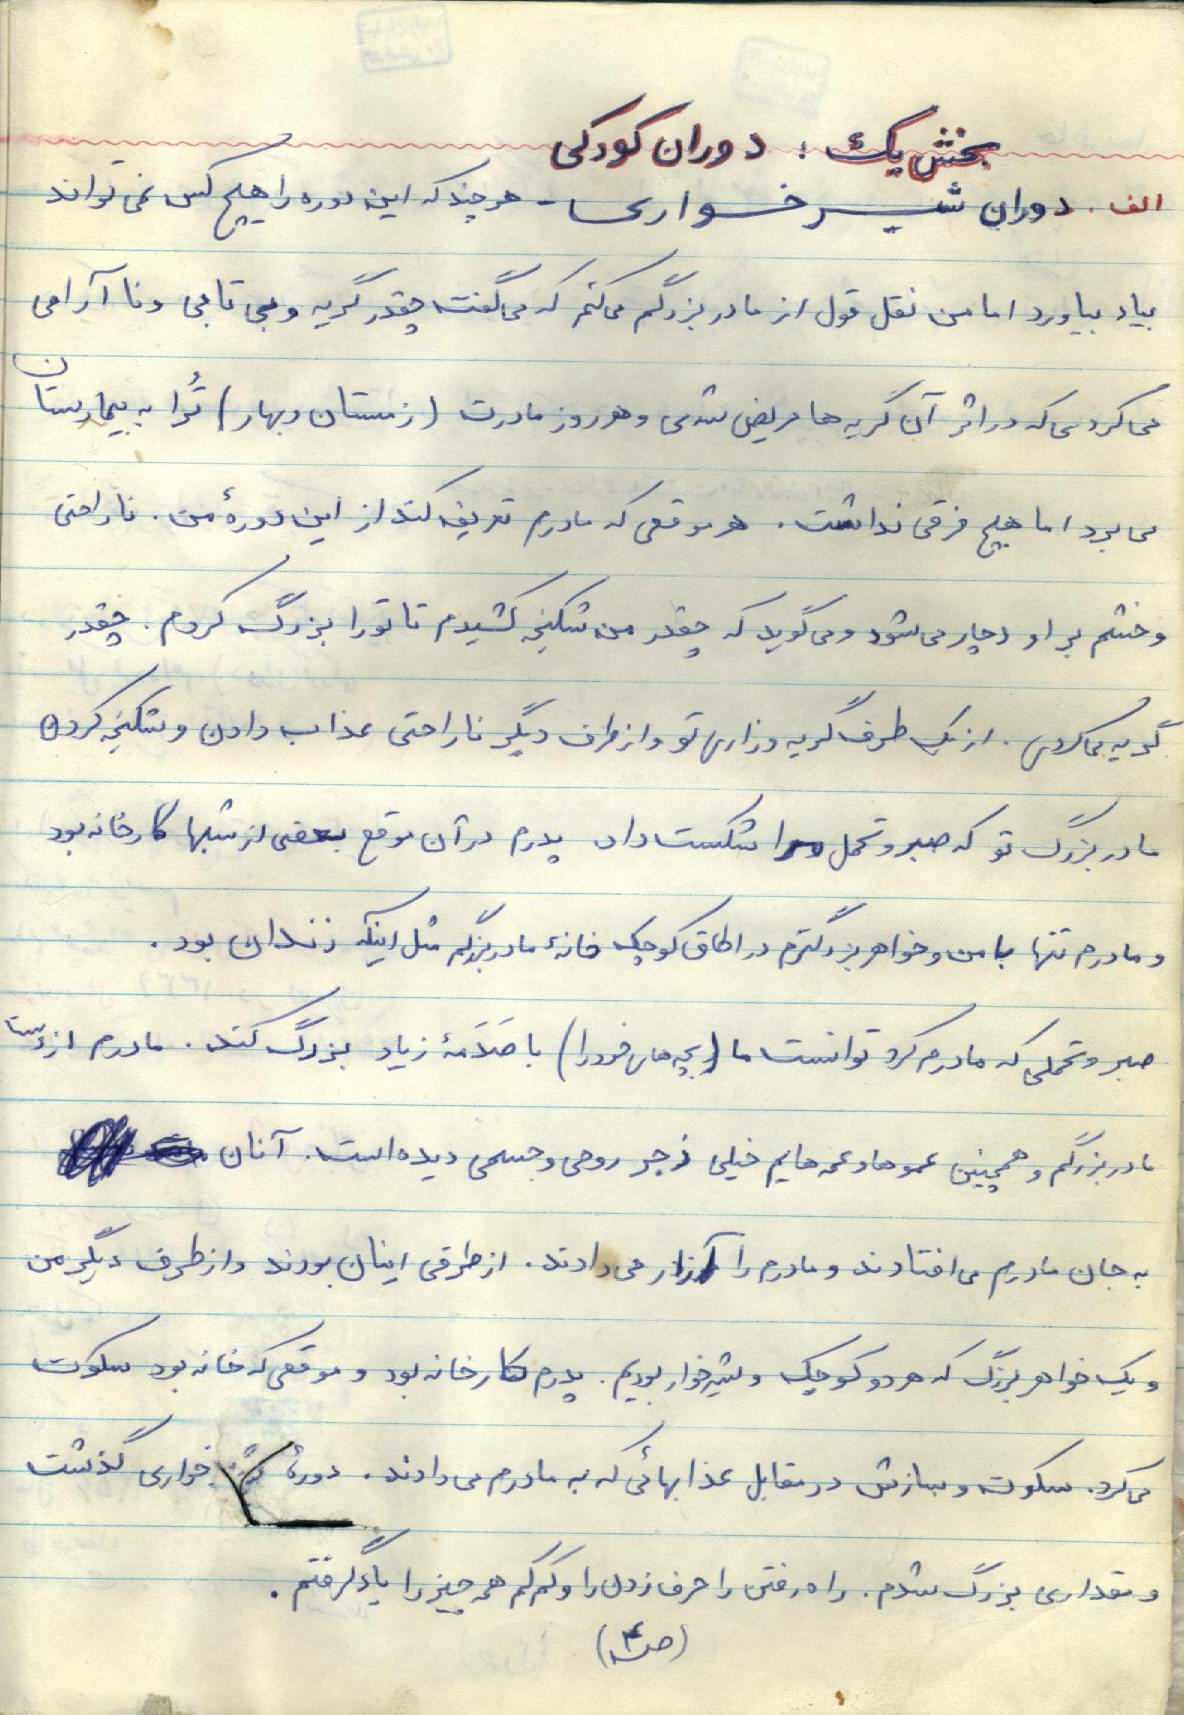 بخش یک : دوران کودکی
الف . دوران شیرخواری - هرچند که این دوره را هیچ کس نمی تواند
بیاد بیاورد اما من نقل قول از مادربزرگم می‌کنم که می‌گفت چقدر گریه و بی تابی و نا آرامی
می کردی که در اثر آن گریه ها مریض شدی و هر روز مادرت (زمستان و بهار) تُرا به بیمارستان
می برد اما هیچ فرقی نداشت . هر موقعی که مادرم تعریف کند از این دورهٔ من . ناراحتی
و خشم بر او دچار می شود و می گوید که چقدر من شکنجه کشیدم تا تو را بزرگ کردم . چقدر
گریه می کردی . از یک طرف گریه و زاری تو و از طرف دیگر ناراحتی عذاب دادن و شکنجه کردن
مادربزرگ تو که صبر و تحمل مرا شکست داد پدرم در آن موقع بعضی از شبها کارخانه بود
و مادرم تنها با من و خواهر بزرگترم در اطاق کوچک خانهٔ مادربزرگم مثل اینکه زندان بود .
صبر و تحملی که مادرم کرد توانست ما (بچه های خود را) با صَدَمهٔ زیاد بزرگ کند . مادرم از دست
مادربزرگم و همچنین عموها و عمه هایم خیلی زجر روحی و جسمی دیده است . آنان
به جان مادرم می افتادند و مادرم را آزار می دادند . از طرفی اینان بودند و از طرف دیگر من
و یک خواهر بزرگ که هر دو کوچک و شیرخوار بودیم . پدرم کارخانه بود و موقعی که خانه بود سکوت
می کرد . سکوت و سازش در مقابل عذابهائی که به مادرم می دادند . دورهٔ خواری گذشت
و مقداری بزرگ شدم . راه رفتن را حرف زدن را و کم کم همه چیز را یاد گرفتم .
(ص ۴)